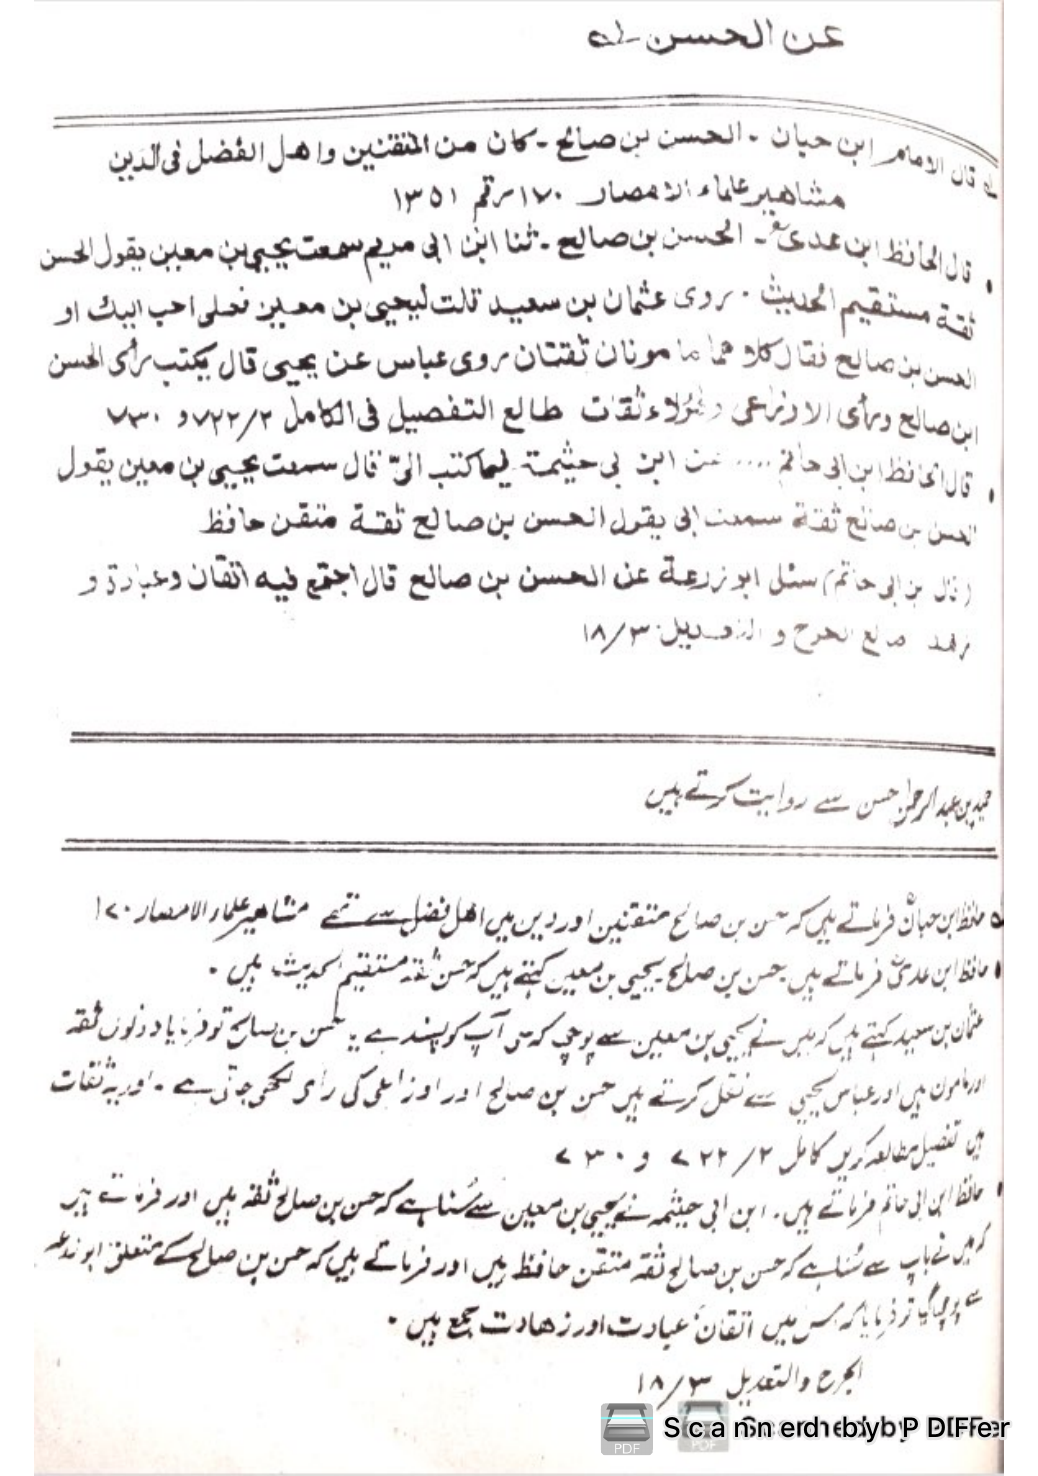 عن الحسن ؎
؎ قال الامام ابن حبان - الحسن بن صالح - كان من المتقنين واهل الفضل فى الدين
مشاهير علماء الامصار ١٧٠ رقم ١٣٥١
• قال الحافظ ابن عدى - الحسن بن صالح - ثنا ابن ابى مريم سمعت يحيى بن معين يقول الحسن
ثقة مستقيم الحديث . روى عثمان بن سعيد قلت ليحيى بن معين فعلى احب اليك او
الحسن بن صالح فقال كلاهما مامونان ثقتان روى عباس عن يحيى قال يكتب رأى الحسن
ابن صالح ورأى الاوزاعى وهؤلاء ثقات طالع التفصيل فى الكامل ٢/٧٢٢ و ٧٣٠
• قال الحافظ ابن ابى حاتم .... عن ابن ابى خيثمة فيما كتب الىّ قال سمعت يحيى بن معين يقول
الحسن بن صالح ثقة سمعت ابى يقول الحسن بن صالح ثقة متقن حافظ
(قال بن ابى حاتم) سئل ابو زرعة عن الحسن بن صالح قال اجتمع فيه اتقان وعبادة و
زهد طالع الجرح و التعديل ٣/١٨
حمید بن عبد الرحمن حسن سے روایت کرتے ہیں
؎ حافظ ابن حبانؒ فرماتے ہیں کہ حسن بن صالح متقنین اور دین میں اهل فضل سے تھے مشاهير علماء الامصار ١٧٠
• حافظ ابن عدیؒ فرماتے ہیں حسن بن صالح یحیی بن معین کہتے ہیں کہ حسن ثقہ مستقیم الحدیث ہیں ۔
عثمان بن سعید کہتے ہیں کہ میں نے یحیی بن معین سے پوچھا کہ علی آپ کو پسند ہے یا حسن بن صالح تو فرمایا دونوں ثقہ
اور مامون ہیں اور عباس یحیی سے نقل کرتے ہیں حسن بن صالح اور اوزاعی کی رأی لکھی جاتی ہے ۔ اور یہ ثقات
ہیں تفصیل مطالعہ کریں کامل ٢/٧٢٢ و ٧٣٠
• حافظ ابن ابی حاتم فرماتے ہیں ۔ ابن ابی خیثمہ نے یحیی بن معین سے سُنا ہے کہ حسن بن صالح ثقہ ہیں اور فرماتے ہیں
کہ میں نے باپ سے سُنا ہے کہ حسن بن صالح ثقہ متقن حافظ ہیں اور فرماتے ہیں کہ حسن بن صالح کے متعلق ابو زرعہ
سے پوچھا گیا تو فرمایا کہ اس میں اتقان عبادت اور زهادت جمع ہیں ۔
الجرح والتعدیل ٣/١٨
Scanned by PDFer